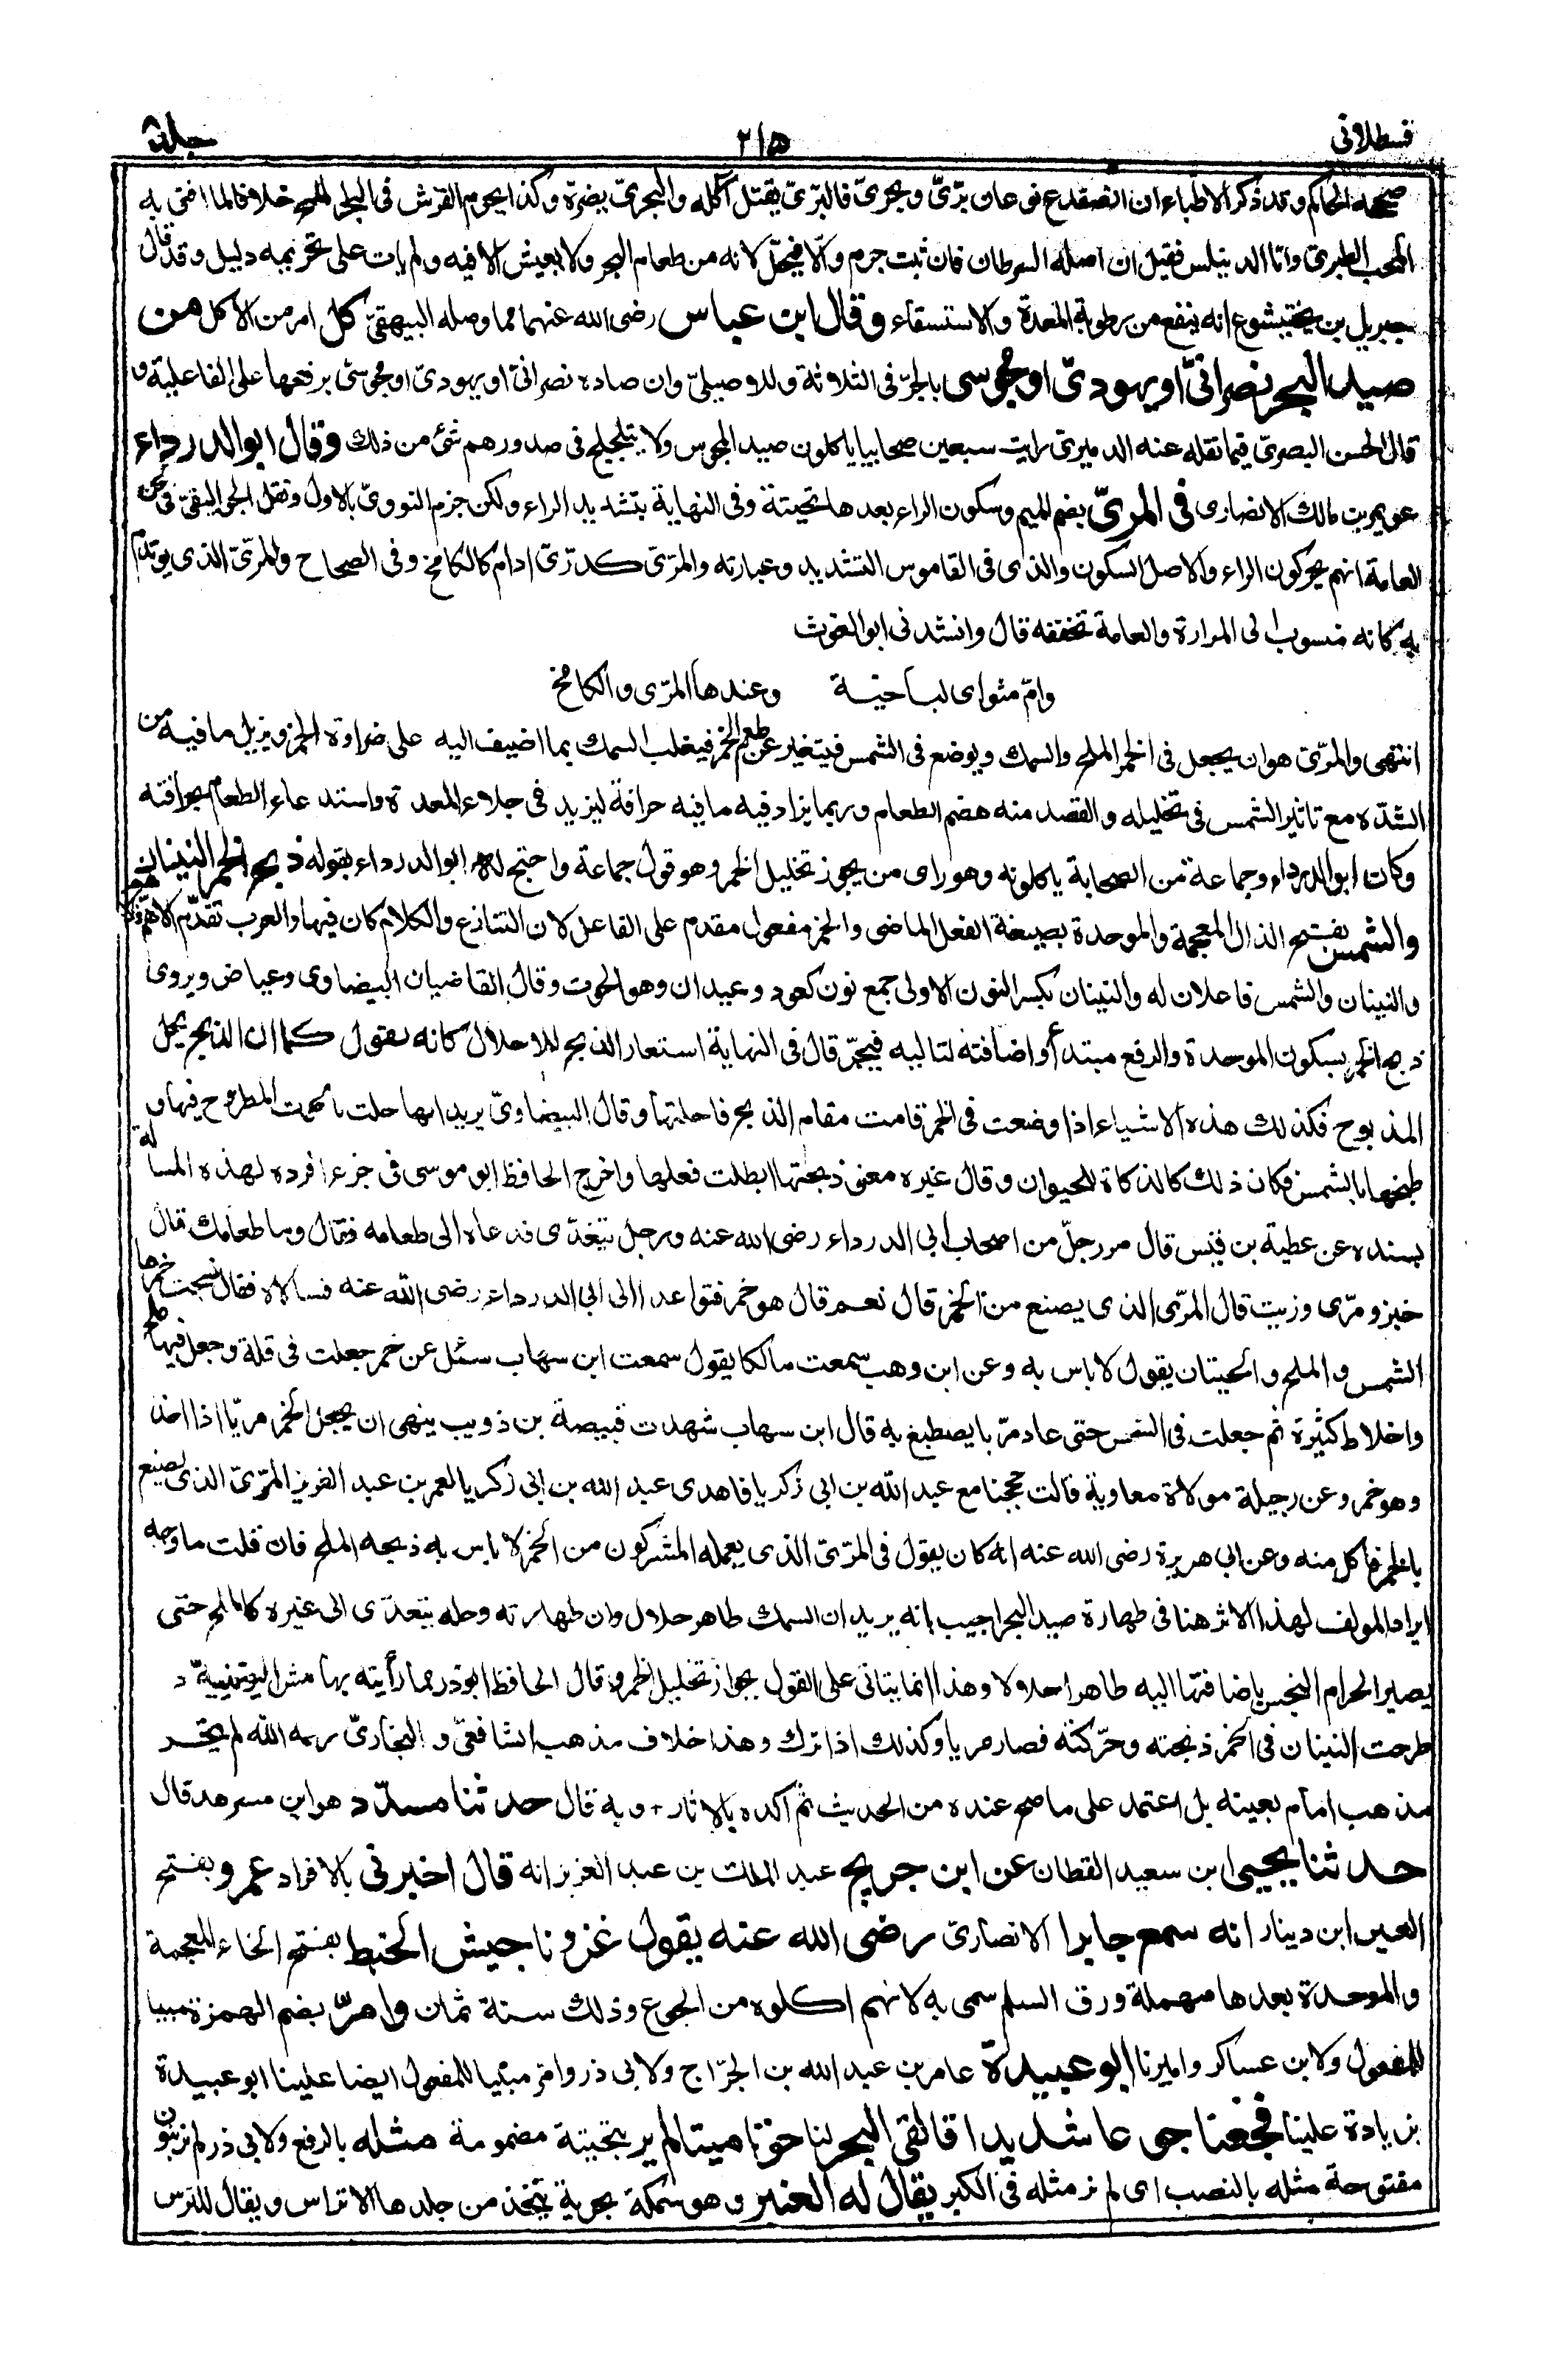 قسطلانی ٢١٥ جلد ٨
صححه الحاكم وقد ذكر الاطباء ان الضفدع نوعان برّيّ وبحريّ فالبرّيّ يقتل آكله والبحريّ يضرّه وكذا يحرم القرش فى البحر الملح خلافا لما افتى به
المحب الطبرى واما الدنيلس فقيل ان اصله السرطان فان ثبت حرم والّا فيحلّ لانه من طعام البحر ولا يعيش الا فيه ولم يات على تحريمه دليل وقد قال
جبريل بن بختيشوع انه ينفع من رطوبة المعدة والاستسقاء وقال ابن عباس رضى الله عنهما مما وصله البيهقيّ كل امر من الاكل من
صيد البحر نصرانيّ او يهوديّ او مجوسى بالجرّ فى الثلاثة وللاصيليّ وان صاده نصرانيّ او يهوديّ او مجوسيّ برفعها على الفاعلية و
قال الحسن البصرىّ فيما نقله عنه الدميرى رايت سبعين صحابيا ياكلون صيد المجوس ولا يتلجلج فى صدورهم شئ من ذلك وقال ابو الدرداء
عويمر بن مالك الانصارى فى المريّ بضم الميم وسكون الراء بعدها تحيتة وفى النهاية بتشديد الراء ولكن جزم النووىّ بالاول ونقل الجواليقىّ فى لحن
العامة انهم يحركون الراء والاصل السكون والذى فى القاموس التشديد وعبارته والمرّىّ كدرّىّ ادام كالكامخ وفى الصحاح والمرّىّ الذى يوتدم
به كانه منسوب الى المرارة والعامة تخففه قال وانشدنى ابو الغوث
وامّ مثواى لباخيّة وعندها المرّى والكامخ
انتهى والمرّى هو ان يجعل فى الخمر الملح والسمك ويوضع فى الشمس فيتغير عن طعم الخمر فيغلب السمك بما اضيف اليه على ضراوة الخمر ويزيل ما فيه من
الشدّه مع تاثير الشمس فى تخليله والقصد منه هضم الطعام وربما يزاد فيه ما فيه حرافة ليزيد فى جلاء المعدة واستدعاء الطعام بحرافته
وكان ابو الدرداء وجماعة من الصحابة ياكلونه وهو راى من يجوز تخليل الخمر وهو قول جماعة واحتج له ابو الدرداء بقوله ذبح الخمر النينان
والشمس بفتح الذال المعجمة والموحدة بصيغة الفعل الماضى والخمر مفعول مقدم على الفاعل لان التنازع والكلام كان فيها والعرب تقدّم الاهمّ
والنينان والشمس فاعلان له والنينان بكسر النون الاولى جمع نون كعود وعيدان وهو الحوت وقال القاضيان البيضاوى وعياض ويروى
ذبح الخمر بسكون الموحدة والرفع مبتدأ واضافته لتاليه فيجرّ قال فى النهاية استعار الذبح للاحلال كانه يقول كما ان الذبح يحل
المذبوح فكذلك هذه الاشياء اذا وضعت فى الخمر قامت مقام الذبح فاحلتها وقال البيضاوىّ يريد انها حلت بالحوت المطروح فيها و
طبخها بالشمس فكان ذلك كالذكاة للحيوان وقال غيره معنى ذبحتها ابطلت فعلها واخرج الحافظ ابو موسى فى جزء افرده لهذه المسالة
بسنده عن عطية بن قيس قال مر رجل من اصحاب ابى الدرداء رضى الله عنه ورجل يتغدّى فدعاه الى طعامه فقال وما طعامك قال
خبز ومرّى وزيت قال المرّى الذى يصنع من الخمر قال نعم قال هو خمر فتواعدا الى ابى الدرداء رضى الله عنه فسالاه فقال ذبحت خمرها
الشمس والملح والحيتان يقول لا باس به وعن ابن وهب سمعت مالكا يقول سمعت ابن شهاب سئل عن خمر جعلت فى قلة وجعل فيها ملح
واخلاط كثيرة ثم جعلت فى الشمس حتى عاد مرّيا يصطبغ به قال ابن شهاب شهدت قبيصة بن ذويب ينهى ان يجعل الخمر مريّا اذا اخذ
وهو خمر وعن رجيلة مولاة معاوية قالت حججنا مع عبد الله بن ابى زكريا فاهدى عبد الله بن ابى زكريا لعمر بن عبد العزيز المرّىّ الذى يصنع
بالخمر فاكل منه وعن ابى هريرة رضى الله عنه انه كان يقول فى المرّىّ الذى يعمله المشركون من الخمر لا باس به ذبحه الملح فان قلت ما وجه
ايراد المولف لهذا الاثر هنا فى طهارة صيد البحر اجيب بانه يريد ان السمك طاهر حلال وان طهارته وحله يتعدّى الى غيره كالملح حتى
يصير الحرام النجس باضافتها اليه طاهرا حلالا وهذا انما يتاتى على القول بجواز تخليل الخمر وقال الحافظ ابو ذر مما رأيته بهامش اليونينيّة
طرحت النينان فى الخمر ذبحته وحرّكته فصار مريا وكذلك اذا ترك وهذا خلاف مذهب الشافعىّ والبخارىّ رحمه الله لم يتحر
مذهب امام بعينه بل اعتمد على ما صح عنده من الحديث ثم اكده بالاثار + وبه قال حدثنا مسدّد هو ابن مسرهد قال
حدثنا يحيى ابن سعيد القطان عن ابن جريج عبد الملك بن عبد العزيز انه قال اخبرنى بالافراد عمرو بفتح
العين ابن دينار انه سمع جابرا الانصارى رضى الله عنه يقول غزونا جيش الخبط بفتح الخاء المعجمة
والموحدة بعدها مهملة ورق السلم سمى به لانهم اكلوه من الجوع وذلك سنة ثمان وامّر بضم الهمزة مبنيا
للمفعول ولابن عساكر واميرنا ابو عبيدة عامر بن عبد الله بن الجرّاح ولابى ذر وامّر مبنيا للمفعول ايضا علينا ابو عبيدة
بزيادة علينا فجعنا جوعا شديدا فالقى البحر لنا حوتا ميتا لم ير بتحيتة مضمومة مثله بالرفع ولابى ذر لم نر بنون
مفتوحة مثله بالنصب اى لم نر مثله فى الكبر يقال له العنبر وهو سمكة بحرية يتخذ من جلدها الاتراس ويقال للترس